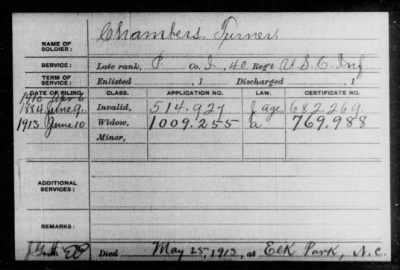 Chambers, Turner
NAME OF SOLDIER:
SERVICE: Late rank, P Co. I, 40 Reg't U.S.C. Inf
TERM OF SERVICE: Enlisted , 1 Discharged , 1
DATE OF FILING. CLASS. APPLICATION NO. LAW. CERTIFICATE NO.
1884 June 9. Invalid, 514.927 age 682.269
1913 June 10 Widow, 1009.255 a 769.988
Minor,
ADDITIONAL SERVICES:
REMARKS:
Died May 25, 1913, at Elk Park, N.C.